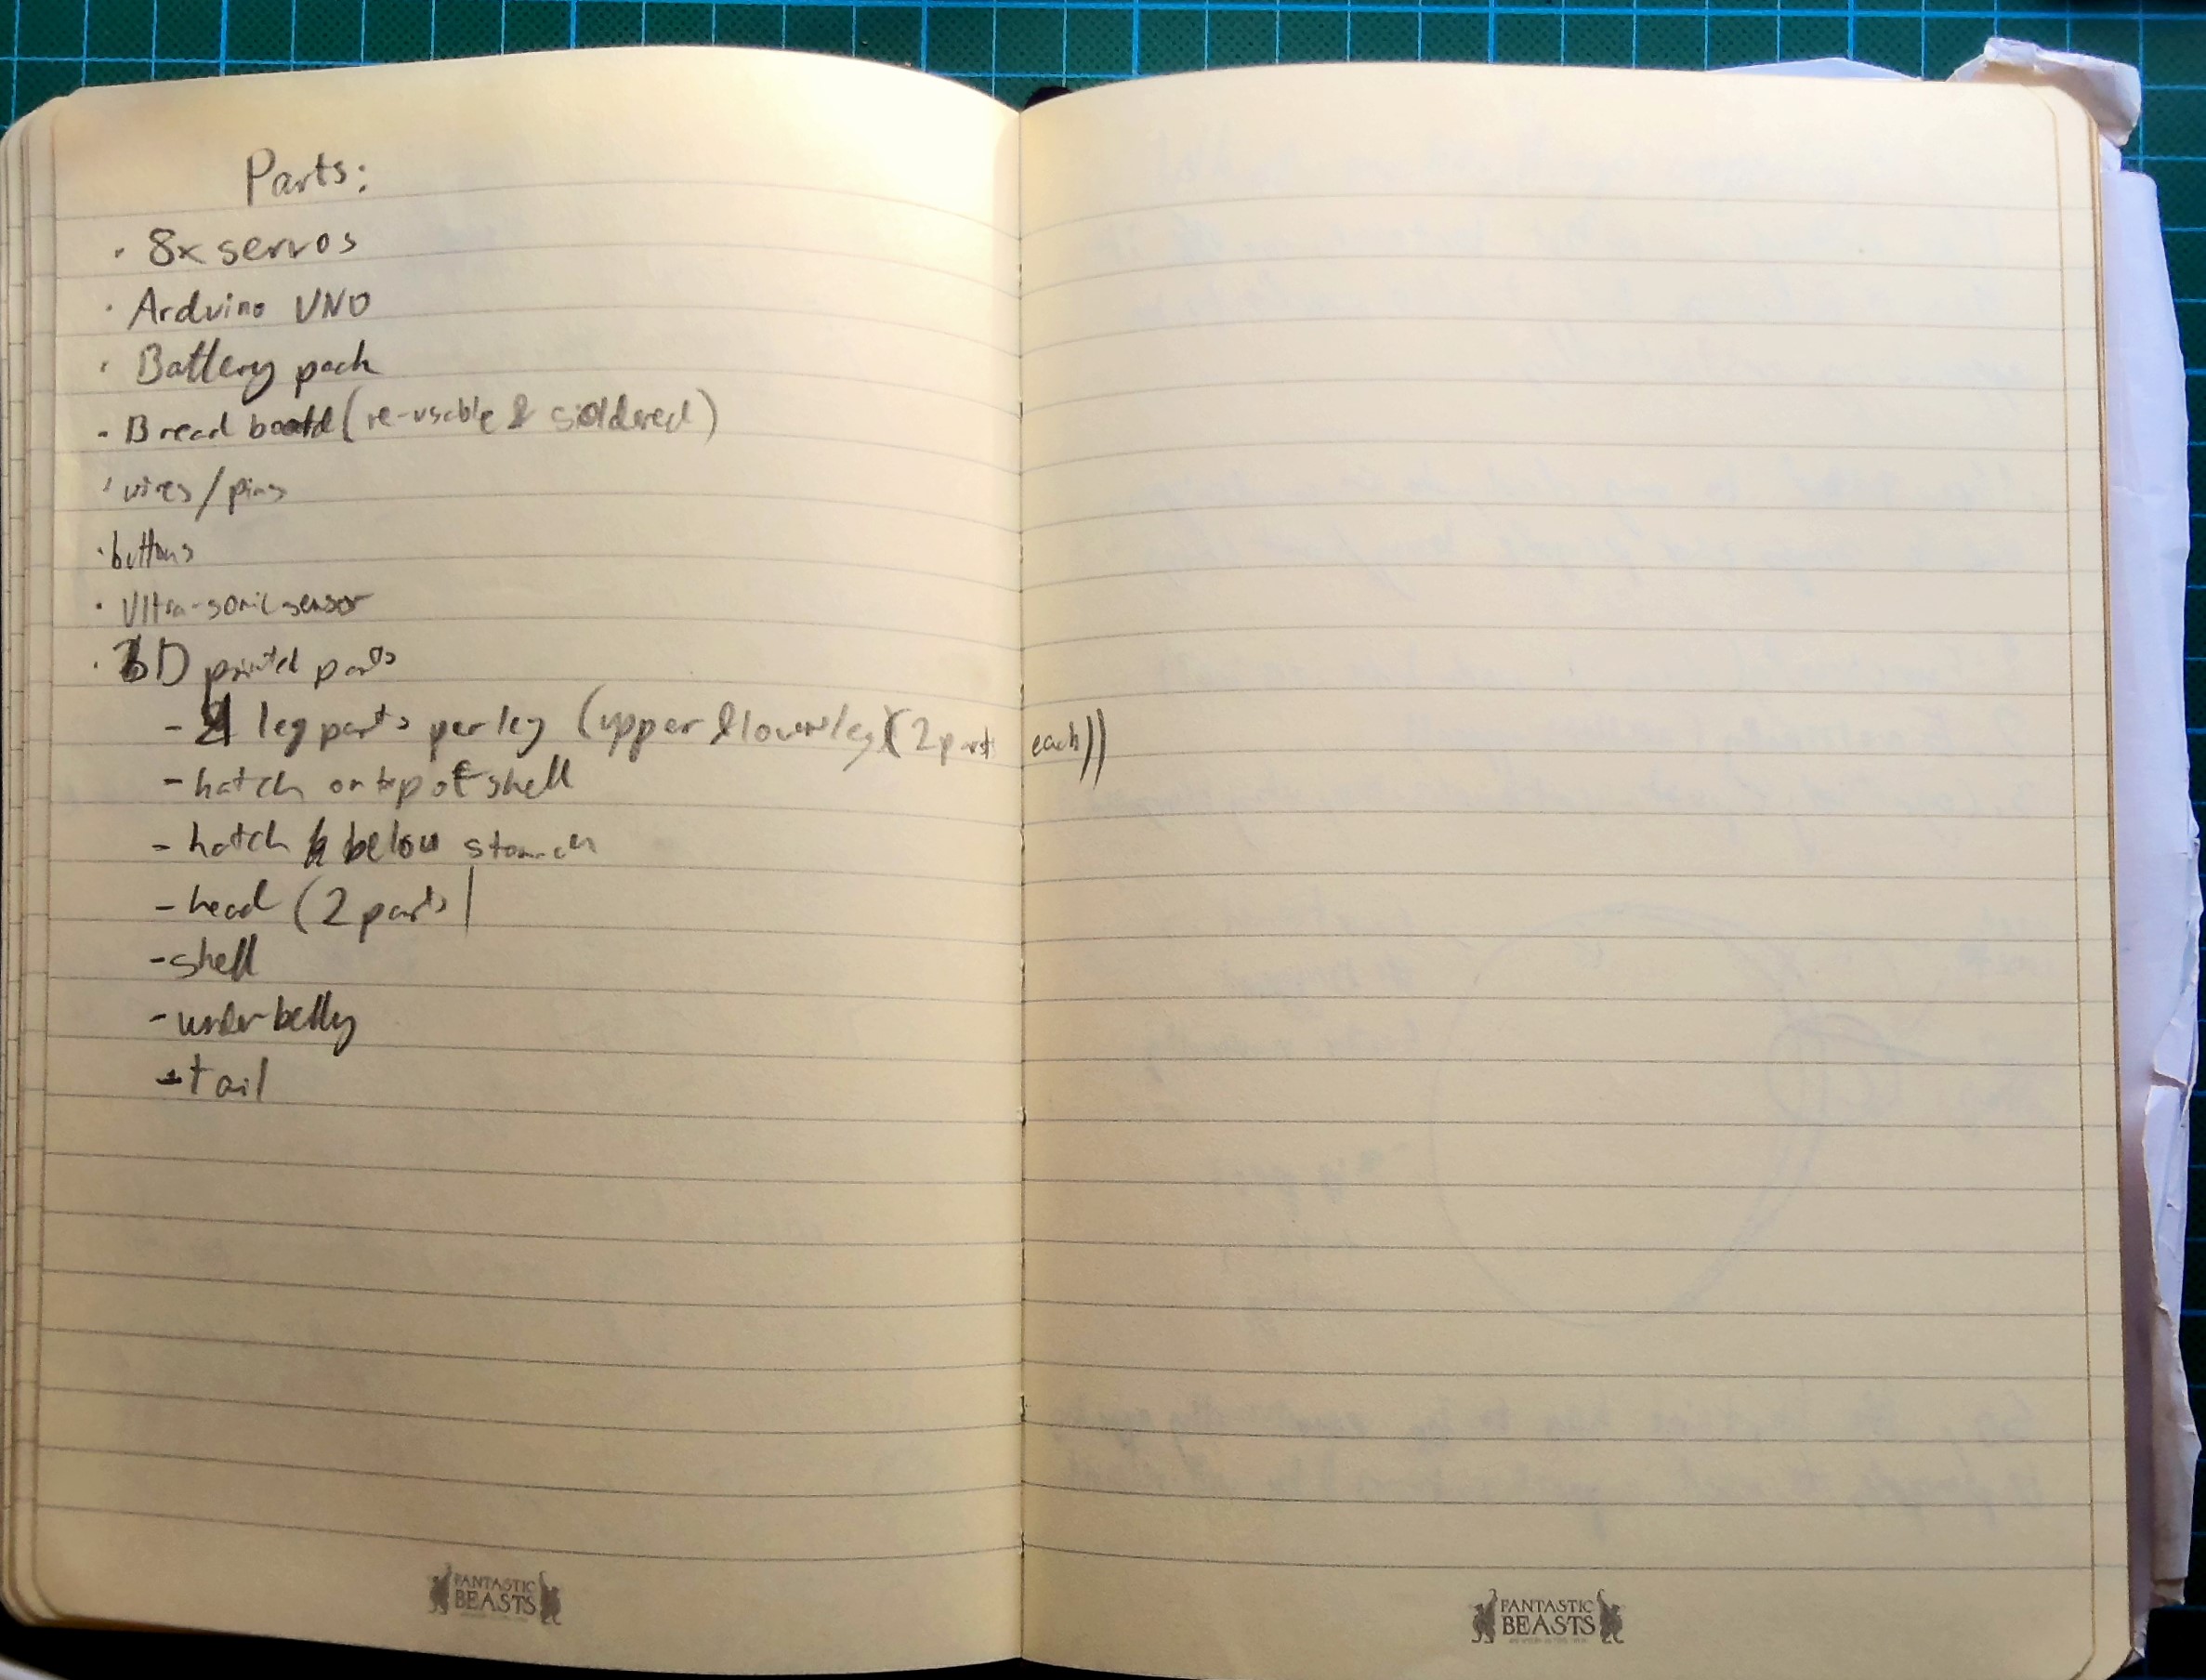 Parts:
· 8x servos
· Arduino UNO
· Battery pack
· Bread board (re-usable & soldered)
· wires/pins
· buttons
· Ultra-sonic sensor
· 3D printed parts
- 4 leg parts per leg (upper & lower leg (2 parts each))
- hatch on top of shell
- hatch below stomach
- head (2 parts)
- shell
- underbelly
- tail
FANTASTIC
BEASTS
FANTASTIC
BEASTS